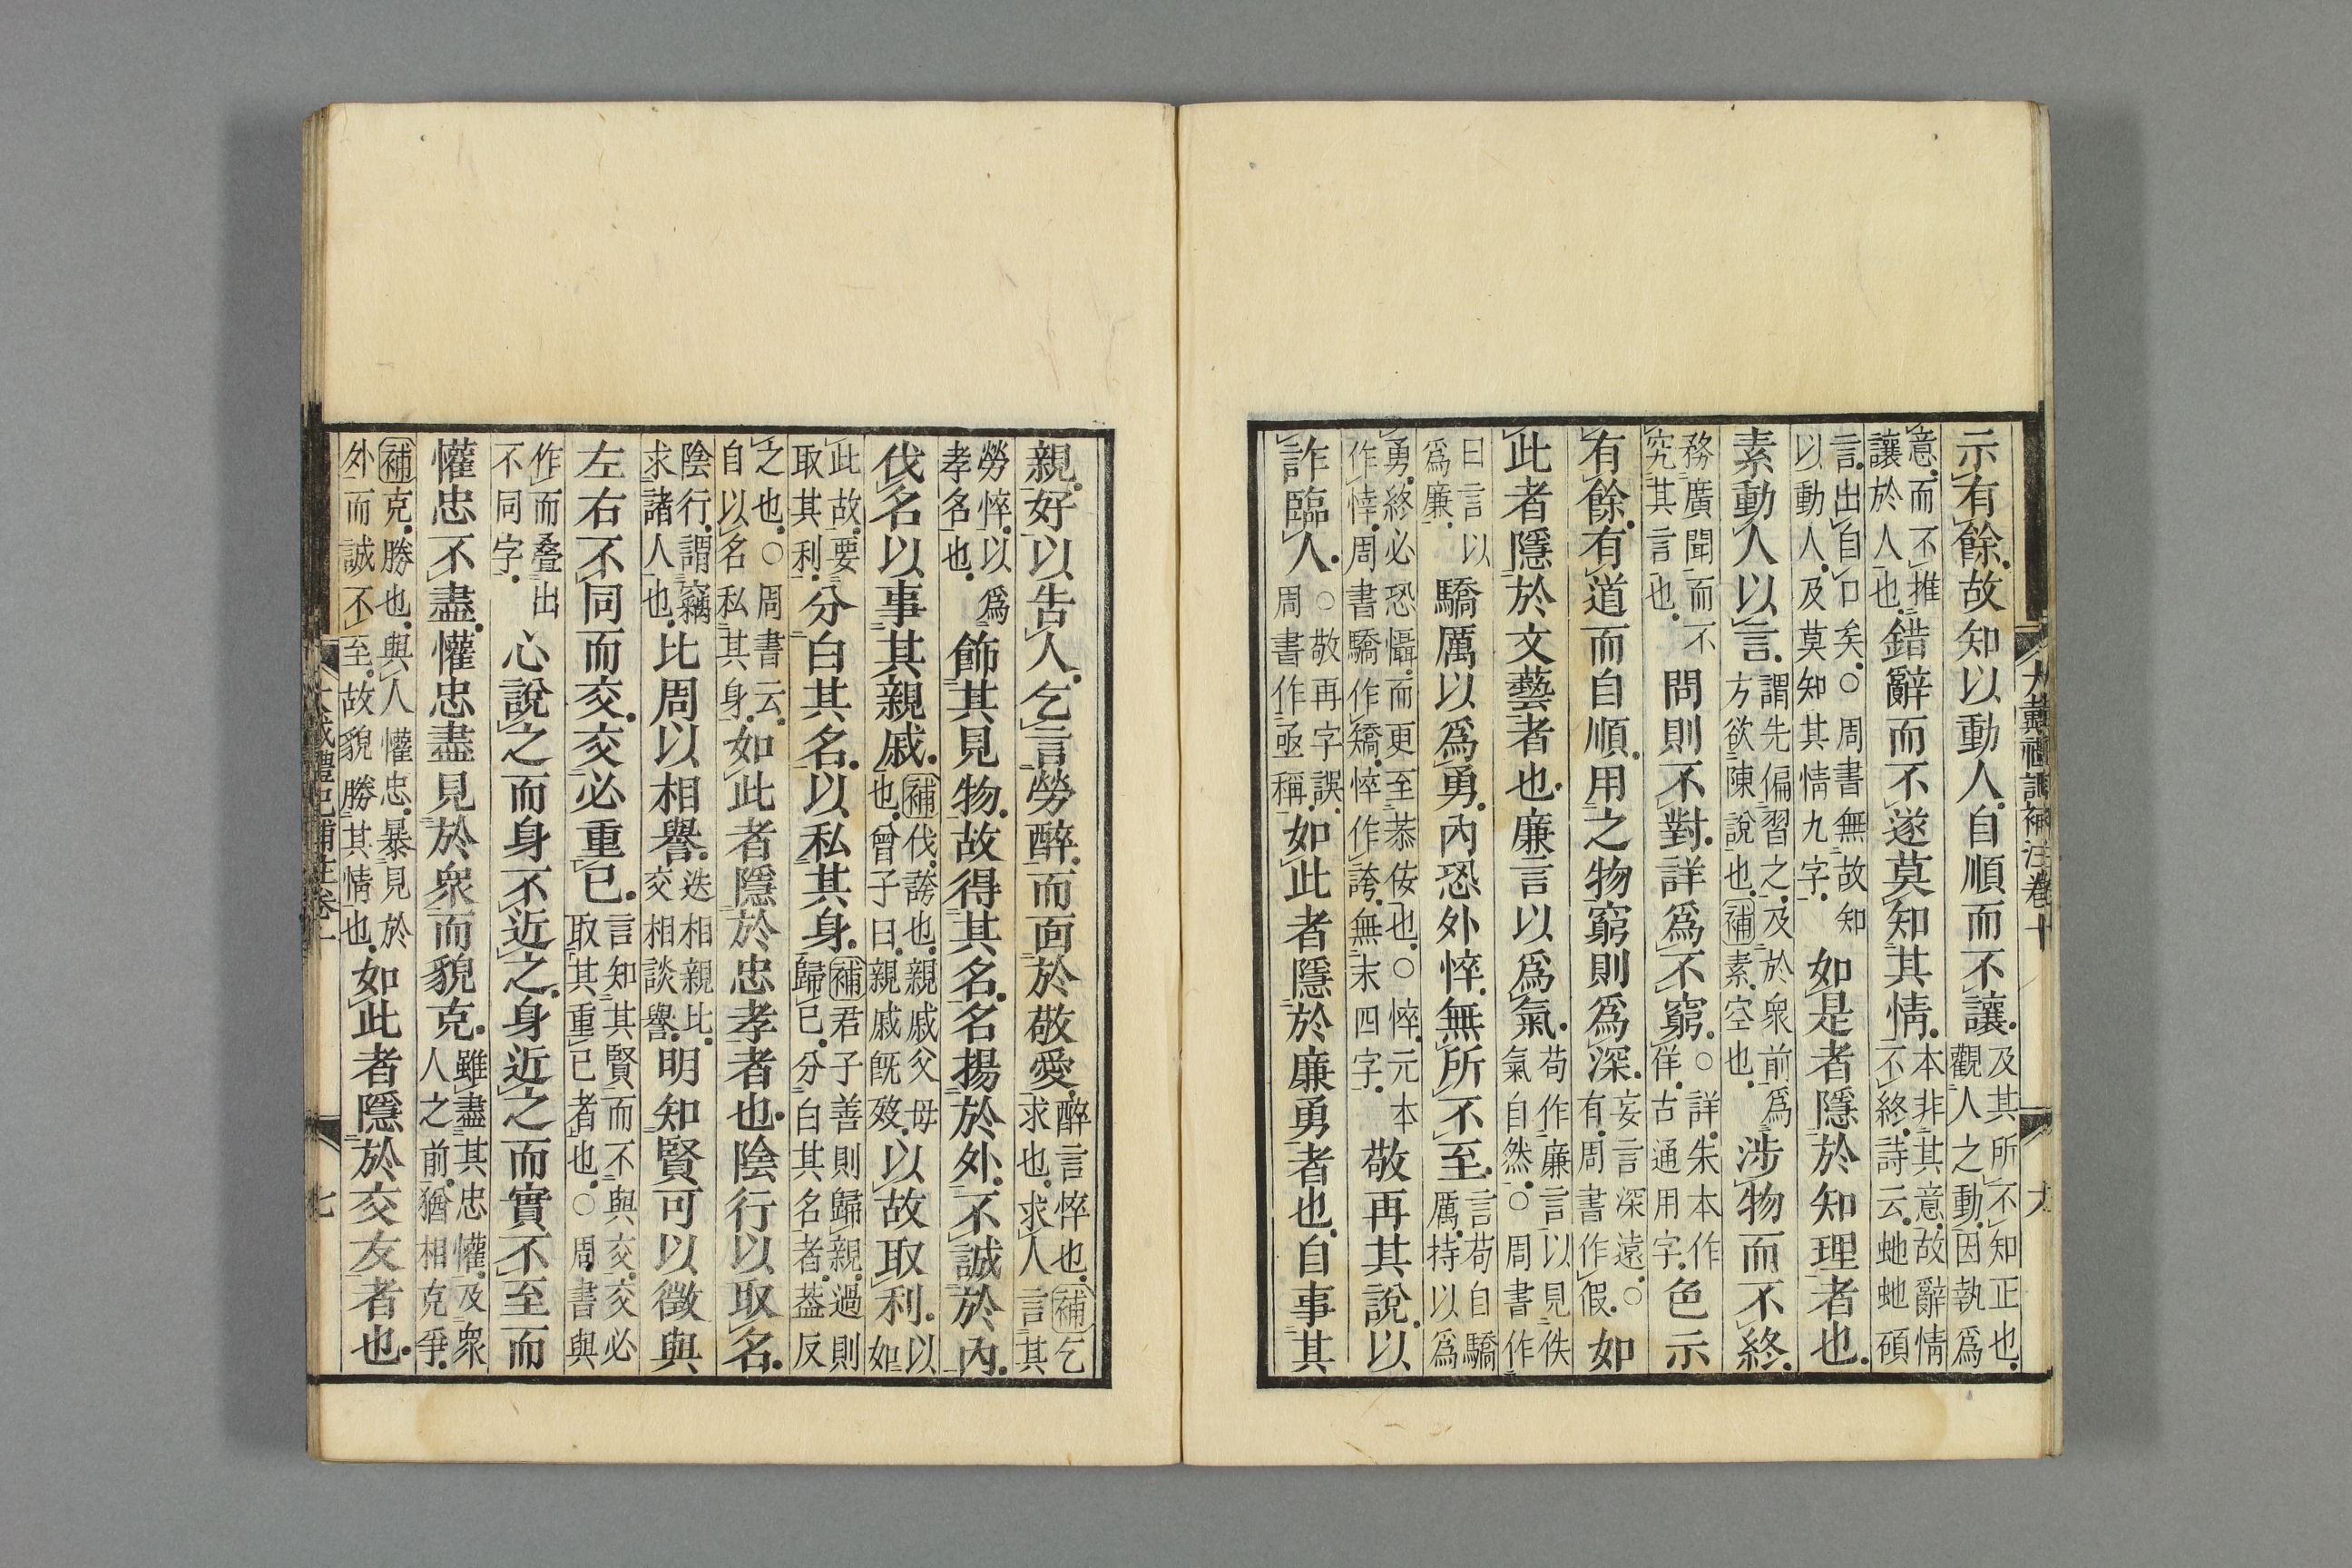 大戴禮記補注卷十
示有餘故知以動人自順而不讓及其所不知正也觀人之動因執爲
意而不推讓於人也錯辭而不遂莫知其情本非其意故辭情不終詩云虵虵碩
言出自口矣○周書無故知以動人及莫知其情九字如是者隱於知理者也
素動人以言謂先偏習之及於衆前爲方欲陳說也補素空也涉物而不終
務廣聞而不究其言也問則不對詳爲不窮○詳朱本作佯古通用字色示
有餘有道而自順用之物窮則爲深妄言深遠○有周書作假如
此者隱於文藝者也廉言以爲氣苟作廉言以見佚氣自然○周書作
曰言以爲廉驕厲以爲勇內恐外悴無所不至言苟自驕厲持以爲
勇終必恐懾而更至恭侫也○悴元本作悻周書驕作矯悴作誇無末四字敬再其說以
詐臨人○敬再字誤周書作亟稱如此者隱於廉勇者也自事其
親好以告人乞言勞醉而面於敬愛醉言悴也補乞求也求人言其
勞悴以爲孝名也飾其見物故得其名名揚於外不誠於內
伐名以事其親戚補伐謗也親戚父母也曾子曰親戚旣歿以故取利以如
此故要取其利分白其名以私其身補君子善則歸親過則歸己分白其名者葢反
之也○周書云自以名私其身如此者隱於忠孝者也陰行以取名
陰行謂竊求諸人也比周以相譽迭相親比交相談譽明知賢可以徵與
左右不同而交交必重己言知其賢而不與交交必取其重己者也○周書與
作而叠出不同字心說之而身不近之身近之而實不至而
懽忠不盡懽忠盡見於衆而貌克雖盡其忠懽及衆人之前猶相克爭
補克勝也與人懽忠暴見於外而誠不至故貌勝其情也如此者隱於交友者也
大戴禮記補注卷十
七